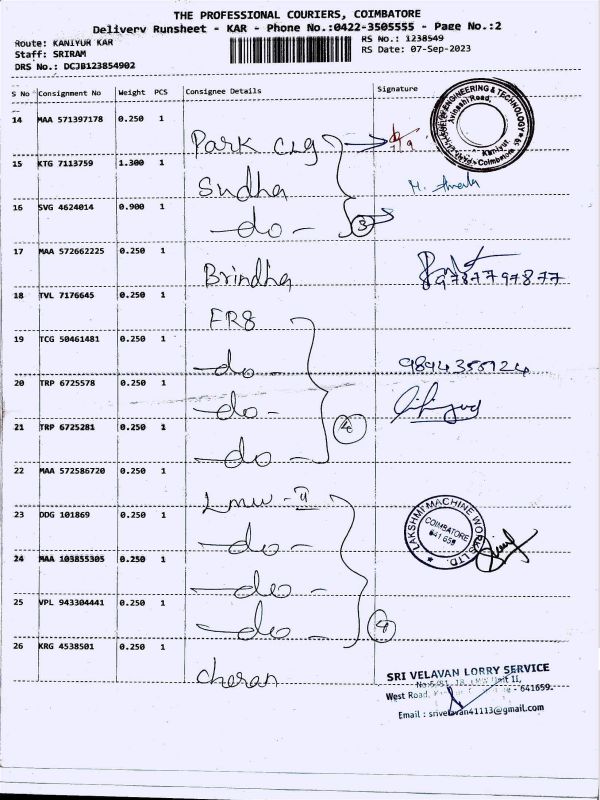 THE PROFESSIONAL COURIERS, COIMBATORE
Delivery Runsheet - KAR - Phone No.:0422-3505555 - Page No.:2
Route: KANIYUR KAR
RS No.: 1238549
Staff: SRIRAM
RS Date: 07-Sep-2023
DRS No.: DCJB123854902
S No Consignment No Weight PCS Consignee Details Signature
14 MAA 571397178 0.250 1 Park Clg
15 KTG 7113759 1.300 1 Sudha
16 SVG 4624014 0.900 1 -do- 3
17 MAA 572662225 0.250 1 Brindha
18 TVL 7176645 0.250 1 FR8
19 TCG 50461481 0.250 1 -do-
20 TRP 6725578 0.250 1 -do-
21 TRP 6725281 0.250 1 -do- 4
22 MAA 572586720 0.250 1 LMW - II
23 DDG 101869 0.250 1 -do-
24 MAA 103855305 0.250 1 -do-
25 VPL 943304441 0.250 1 -do- 4
26 KRG 4538501 0.250 1 cheran
ENGINEERING & TECHNOLOGY
Avinashi Road,
Kaniyur
Coimbatore
89787797877
LAKSHMI MACHINE WORKS LTD.
COIMBATORE
641 659
SRI VELAVAN LORRY SERVICE
West Road, - 641659.
Email : srivelavan41113@gmail.com